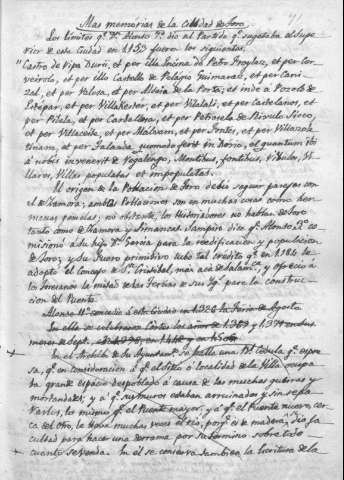 Mas memorias de la Ciudad de Toro.
Los limites q.e D. Alonso 7.o dio al Partido q.e sugetaba al supe
rior de esta Ciudad en 1153 fueron los siguientes,
Castro de ripa Durii, et per illa Incina de Petro Froylaz, et per
et per illo Castello de Pelagio Guimaraz, et per Cani
zal, et per Valusa, et per Aldeia de la Porta, et inde a Pozolo de
et per Villaester, et per Vilalali, et per Castelanos, et
per Pitela, et per Carbalosa, et per Petrosela de Rivulo Sicco,
et per Villacella, et per Malvam, et per Fontes, et per
et per Talanda, quomodo ferit in Dorio, et quantum ibi
á nobis invenerit de Regalengo, Montibus, fontibus,
Villares, Villar populatas et impopulatas.
El origen de la Poblacion de Toro debio seguir parejas con
el de Zamora; ambas Poblaciones son en muchas cosas como her
menas gemelas; no obstante, los Historiadores no hablan de Toro
tanto como de Zamora y Simancas. Sampiro dice q.e Alonso 3.o co
misionó a su hijo D.n Garcia para la reedificacion y poblacion
de Toro; y su Fuero primitivo hubo tal credito q.e en 1186 le
adoptó el Concejo de S. Cristobal, mas acá de Salam.ca, y ofreció á
los Toresanos la mitad de las Tercias de sus Ig.s para la construc
cion del Puente.
Alonso 11.o concedio á esta ciudad en 1326 la Feria de Agosto
En ella se celebraron Cortes los años de 1369 y 1371 en los
meses de Sept.
En el Archivo de su Ayuntam.to se halla una R.l Cedula q.e expre
sa, q.e en consideracion á q.e el sitio ó localidad de la Villa ocupa
ba grande espacio despoblado a causa de las muchas guerras y
mortandades; y á q.e sus muros estaban arruinados y sin repa
rarlos, lo mismo q.e el Puente mayor, y á q.e el Puente nuevo cer
ca del otro, le llevó muchas veces el rio, por q.e es de madera, dio fa
cultad para hacer una derrama por su termino sobre todo
cuanto se venda. En él se conserva tambien la Escritura de la